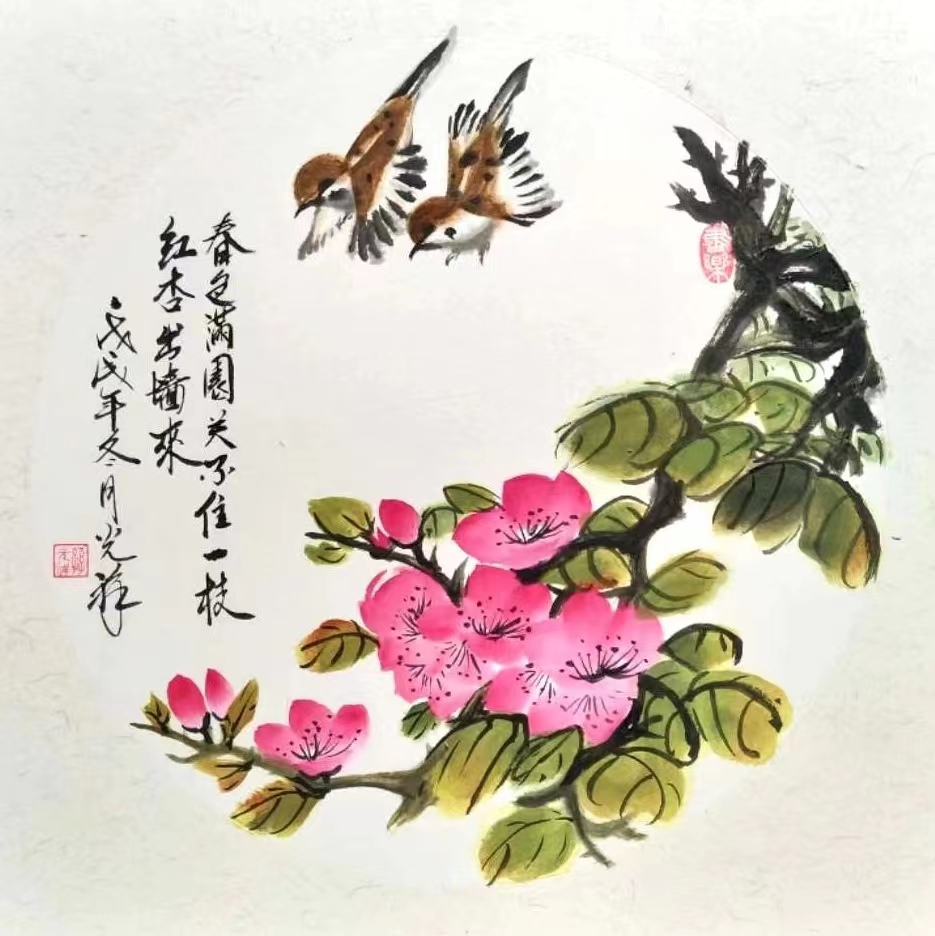 春色满園关不住一枝
红杏出墙來
戊戌年冬月光祥